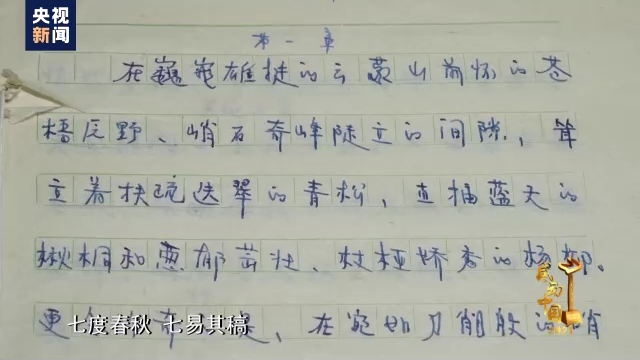 央视
新闻
第一章
在巍巍雄挺的云蒙山前怀的苍
梧丘野、峭石奇峰陡立的间隙，耸
立着扶疏迭翠的青松，直插蓝天的
楸桐和葱郁茁壮、枝桠娇秀的杨柳。
更
在宛如刀削般的峭
七度春秋 七易其稿